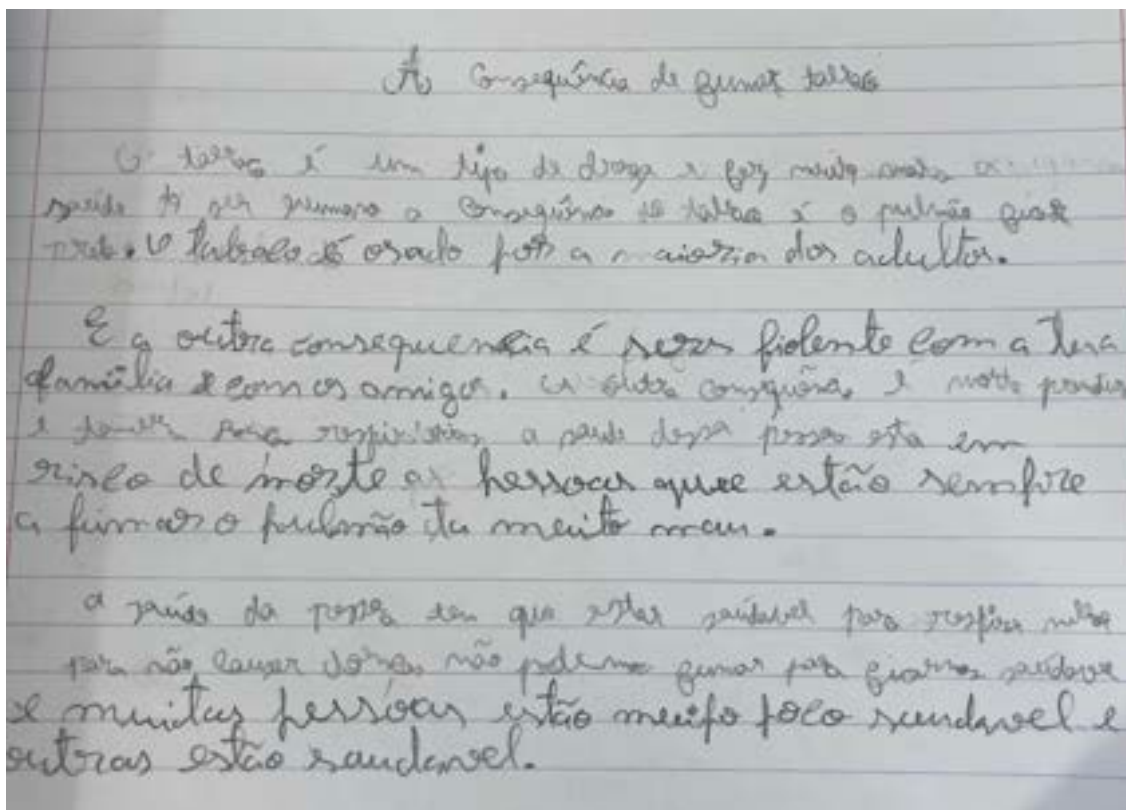 A Consequência de fumar tabaco
O tabaco é um tipo de droga e faz muito mal a
saúde do ser humano a consequência do tabaco é o pulmão ficar
preto. O tabaco é osado por a maioria dos adultos.
E a outra consequencia é sers fiolente com a tua
família e com os amigos. a outra consequência é morte
e respiratórios a saude dessa pessoa esta em
risco de morte as pessoas que estão sempre
a fumar o pulmão ta muito mau.
a saúde da pessoa tem que estar saudável para respirar
para não causar não podemos fumar para ficarmos saudave
e muitas pessoas estão muito poco saudavel e
outras estão saudavel.